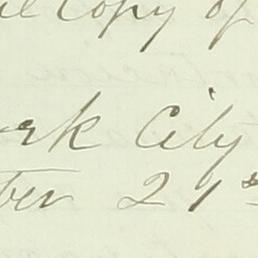 Copy of
rk City
ber 21st